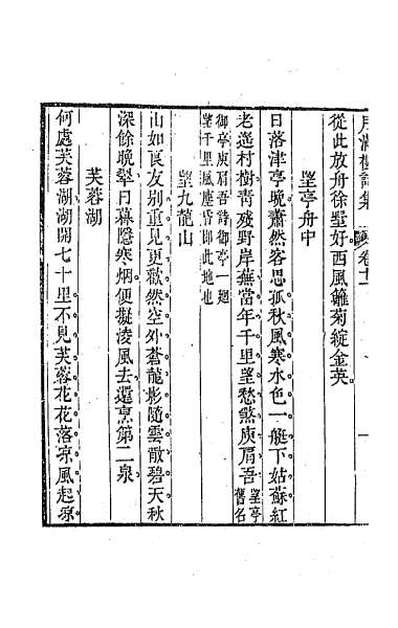 月滿樓詩集 卷十一
從此放舟徐墅好西風籬菊綻金英
望亭舟中
日落津亭晚蕭然客思孤秋風寒水色一艇下姑蘇紅
老遠村樹青殘野岸蕪當年千里望愁煞庾肩吾望亭舊名
御亭庾肩吾詩御亭一廻
望千里風塵昏即此地也
望九龍山
山如良友别重見更歡然空外蒼龍影隨雲散碧天秋
深餘晚翠日暮隱寒烟便擬凌風去還烹第二泉
芙蓉湖
何處芙蓉湖湖開七十里不見芙蓉花花落凉風起凉